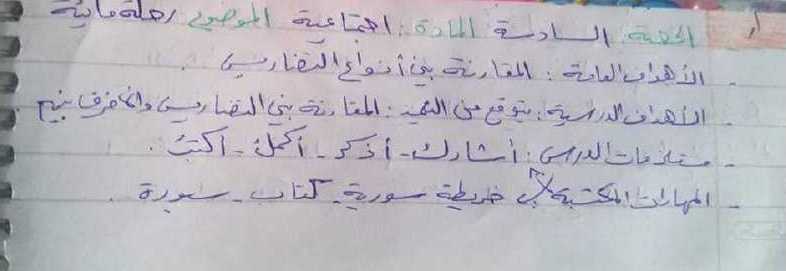 الحصة: السادسة المادة: اجتماعية الموضوع رحلة مائية
- الأهداف العامة: المقارنة بين أنواع التضاريس.
- الأهداف الدرسية: يتوقع من التلميذ: المقارنة بين التضاريس والتفريق بينهم.
- مستلزمات الدرس: أشارك - أذكر - أكمل - أكتب.
- المهارات المكتسبة خريطة سورية - كتاب - سبورة.